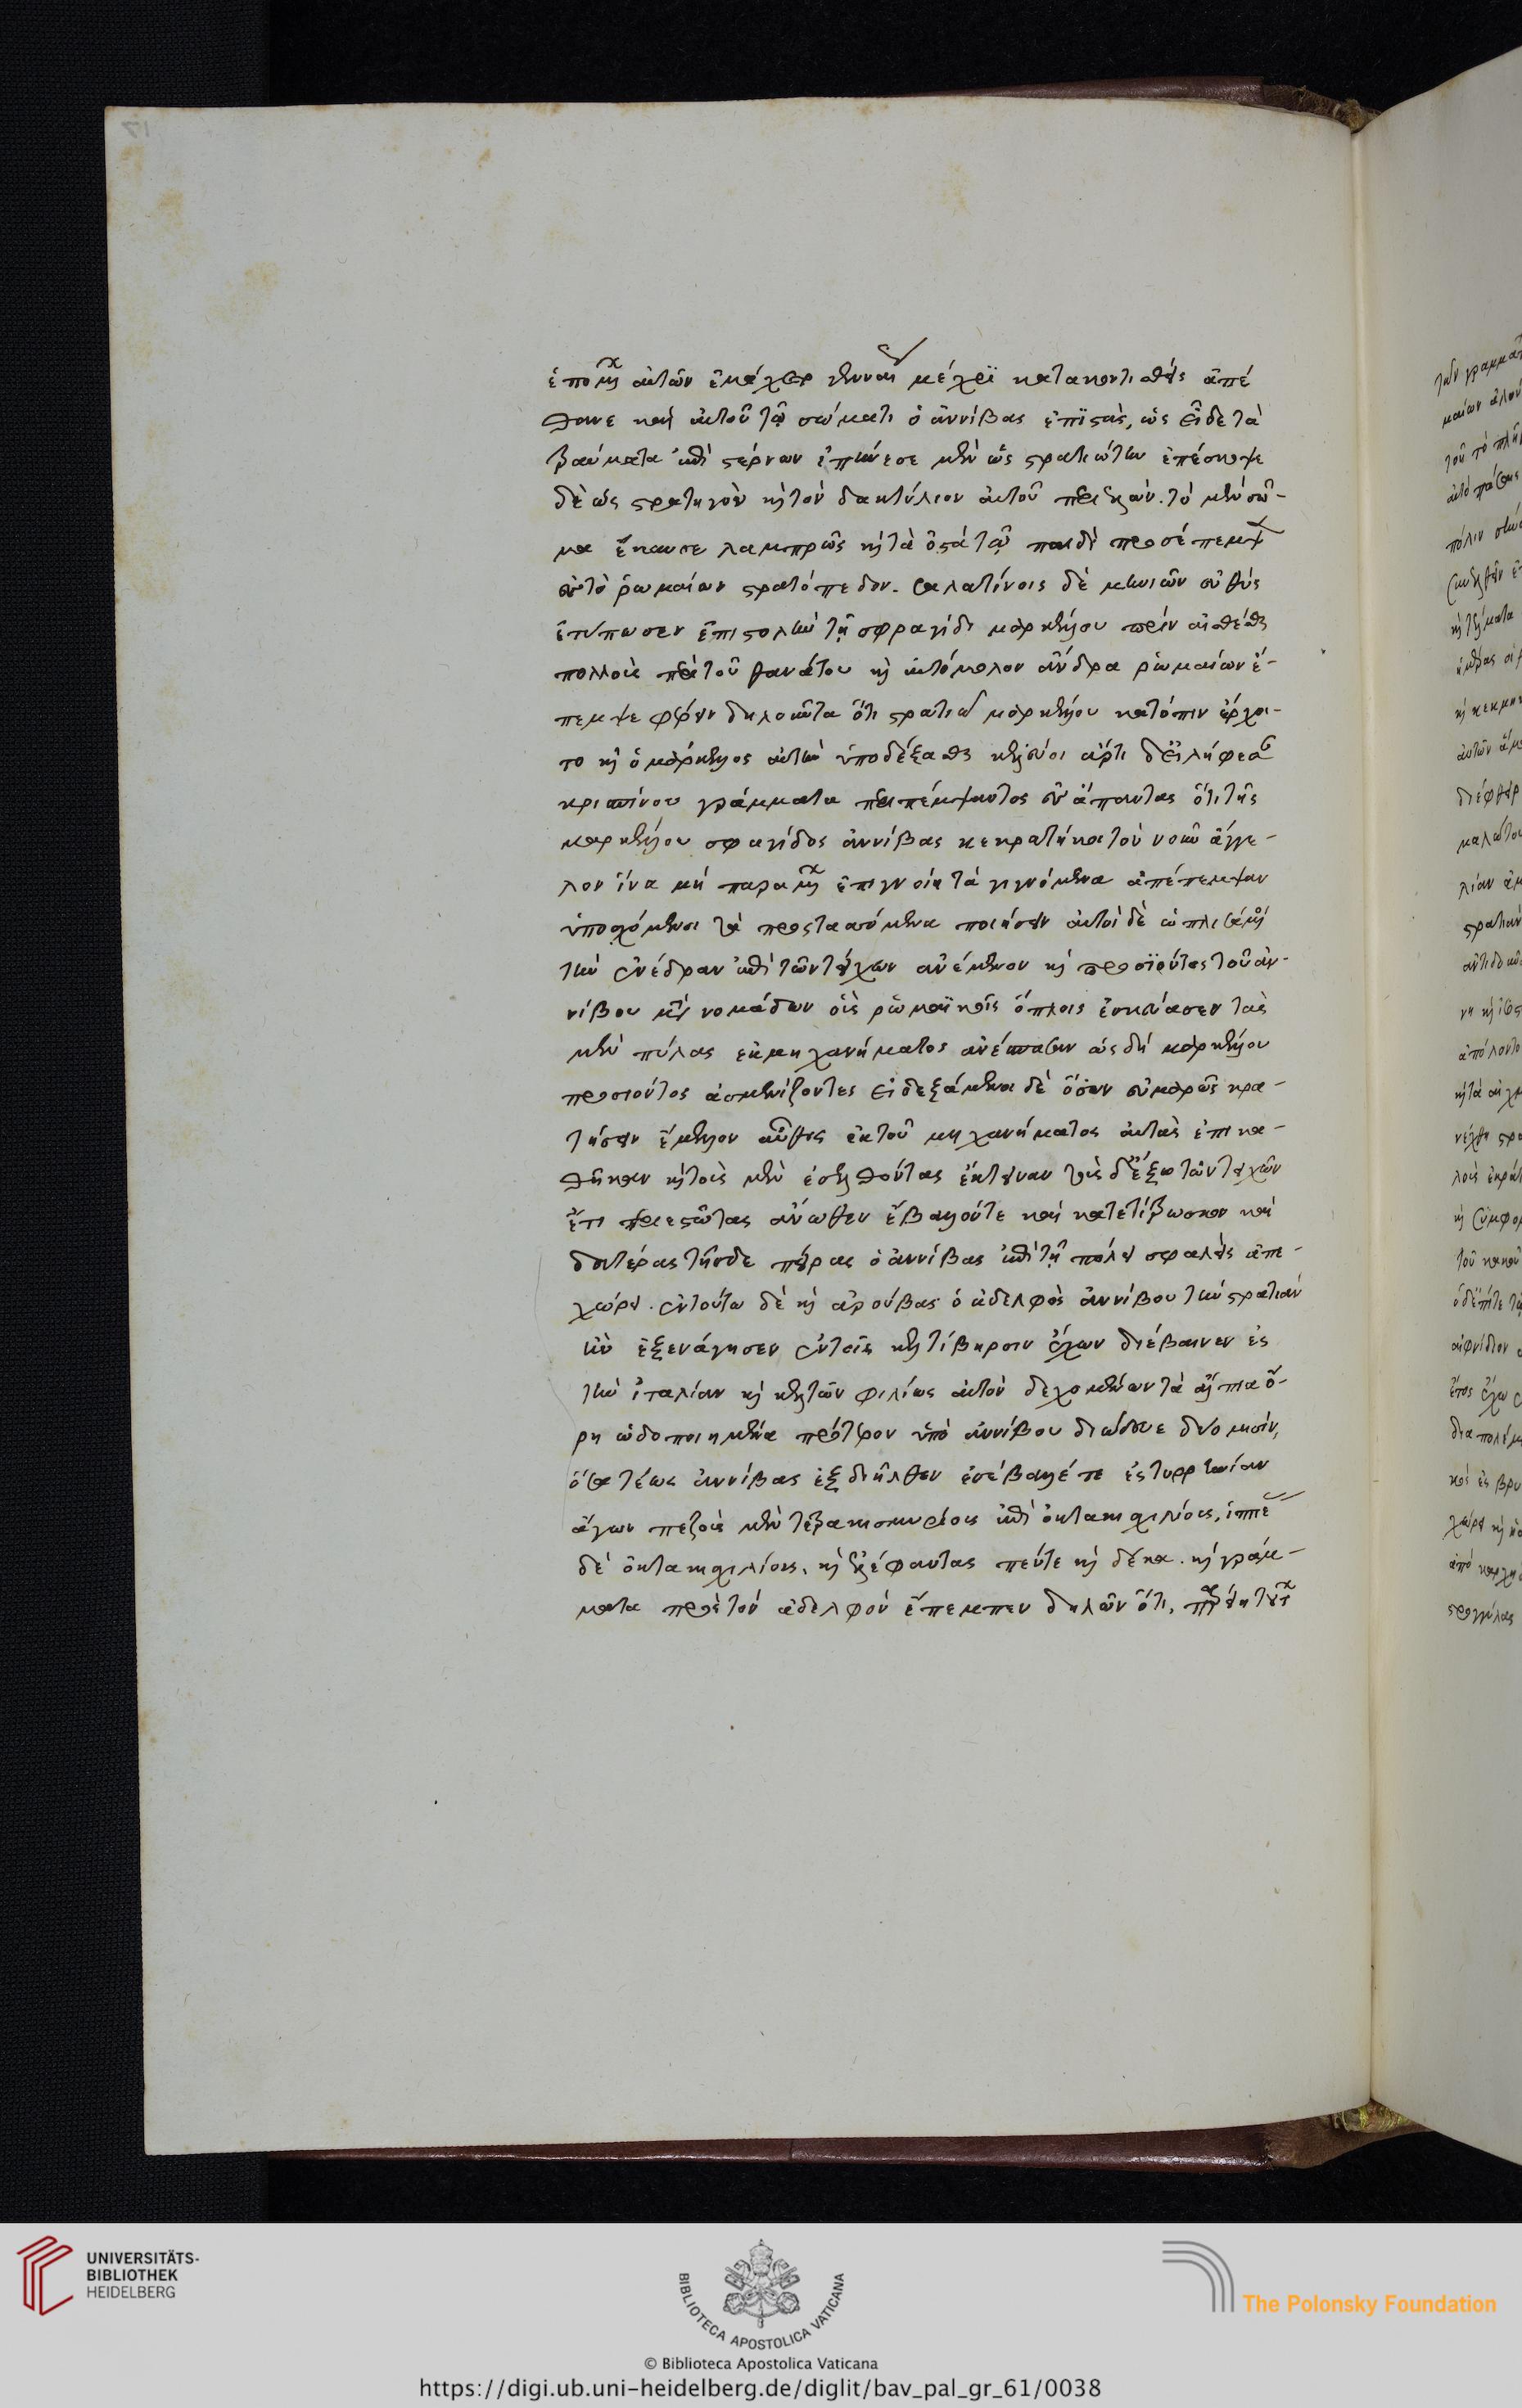 ἑπόμενος αὐτῶν ἐμάχετο γενναίως μέχρι κατακοντισθεὶς ἀπέ
θανε καὶ αὐτοῦ τῷ σώματι ὁ ἀννίβας ἐπιστάς, ὡς εἶδε τὰ
τραύματα ἐπὶ στέρνων ἐπήνεσε μὲν ὡς στρατιώτην ἐπέσκωψε
δὲ ὡς στρατηγὸν καὶ τὸν δακτύλιον αὐτοῦ περιελών. τὸ μὲν σῶ-
μα ἔκαυσε λαμπρῶς καὶ τὰ ὀστᾶ τῷ παιδὶ προσέπεμψεν
ἐς τὸ ῥωμαίων στρατόπεδον. σαλαπίνοις δὲ μηνιῶν εὐθὺς
ἐτύπωσεν ἐπιστολὴν τῇ σφραγίδι μαρκέλλου πρὶν αἰσθέσθαι
πολλοὺς περὶ τοῦ θανάτου καὶ αὐτόμολον ἄνδρα ῥωμαίων ἔ-
πεμψε φέρειν δηλοῦντα ὅτι στρατιὰ μαρκέλλου κατόπιν ἔρχοι-
το καὶ ὁ μάρκελλος αὐτὴν ὑποδέξασθαι κελεύοι ἄρτι δ' εἰλήφεσαν
κρισπίνου γράμματα περιπέμψαντος ἐς ἅπαντας ὅτι τῆς
μαρκέλλου σφραγίδος ἀννίβας κεκρατήκει τὸν οὖν ἄγγε-
λον ἵνα μὴ παραμένων ἐπιγνοίη τὰ γιγνόμενα ἀπέπεμψαν
ὑποσχόμενοι τὰ προστασσόμενα ποιήσειν αὐτοὶ δὲ ὡπλισμένοι
τὴν ἐνέδραν ἐπὶ τῶν τειχῶν ἀνέμενον καὶ προσϊόντος τοῦ ἀν-
νίβου μετὰ νομάδων οἷς ῥωμαϊκοῖς ὅπλοις ἐσκεύασεν τὰς
μὲν πύλας ἐκ μηχανήματος ἀνέσπασαν ὡς δὴ μαρκέλλου
προσιόντος ἀσμενίζοντες εἰσδεξάμενοι δὲ ὅσων εὐμαρῶς κρα-
τήσειν ἔμελλον αὖθις ἐκ τοῦ μηχανήματος αὐτὰς ἐπικα-
θῆκαν καὶ τοὺς μὲν ἐσελθόντας ἔκτειναν τοὺς δ' ἔξω τῶν τειχῶν
ἔτι περιεστῶτας ἄνωθεν ἔβαλλόν τε καὶ κατετίτρωσκον καὶ
δευτέρας τῆσδε πείρας ὁ ἀννίβας ἐπὶ τῇ πόλει σφαλεὶς ἀπε-
χώρει. ἐν τούτω δὲ καὶ ἀσρούβας ὁ ἀδελφὸς ἀννίβου τὴν στρατιάν
ἣν ἐξενάγησεν ἐν τοῖς κελτίβηρσιν ἔχων διέβαινεν ἐς
τὴν ἰταλίαν καὶ κελτῶν φιλίως αὐτὸν δεχομένων τὰ ἄλπια ὄ-
ρη ὡδοποιημένα πρότερον ὑπὸ ἀννίβου διώδευε δύο μησίν,
ὅσα τέως ἀννίβας ἓξ διῆλθεν ἐσέβαλλέ τε ἐς τυρρηνίαν
ἄγων πεζοὺς μὲν τετρακισμυρίους ἐπὶ ὀκτακισχιλίοις, ἱππέας
δὲ ὀκτακισχιλίους, καὶ ἐλέφαντας πέντε καὶ δέκα. καὶ γράμ-
ματα πρὸς τὸν ἀδελφὸν ἔπεμπεν δηλῶν ὅτι, παρείη
UNIVERSITÄTS-
BIBLIOTHEK
HEIDELBERG
BIBLIOTECA APOSTOLICA VATICANA
The Polonsky Foundation
© Biblioteca Apostolica Vaticana
https://digi.ub.uni-heidelberg.de/diglit/bav_pal_gr_61/0038